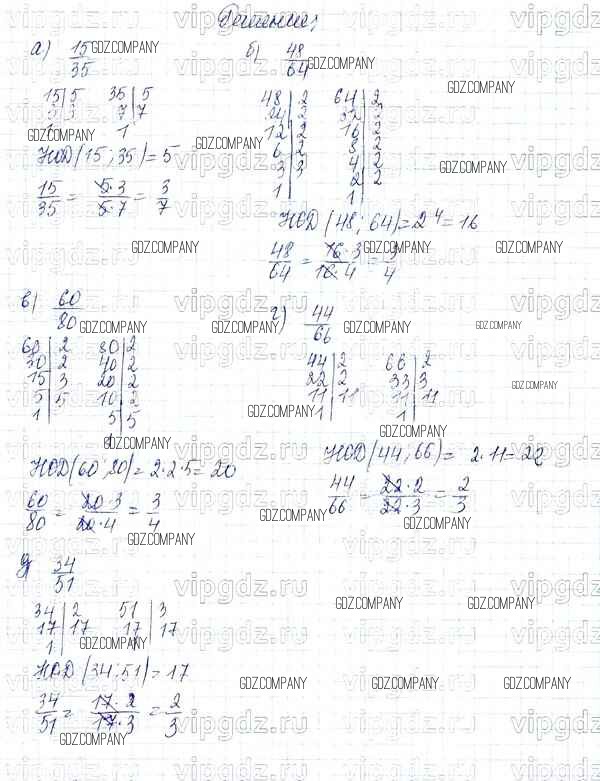 Решение:
а) 15/35
15|5 35|5
3|3 7|7
1 1
НОД(15;35)=5
15/35 = 5·3/5·7 = 3/7
б) 48/64
48|2 64|2
24|2 32|2
12|2 16|2
6|2 8|2
3|3 4|2
1 2|2
1
НОД(48;64)=2⁴=16
48/64 = 16·3/16·4 = 3/4
в) 60/80
60|2 80|2
30|2 40|2
15|3 20|2
5|5 10|2
1 5|5
1
НОД(60;80)=2·2·5=20
60/80 = 20·3/20·4 = 3/4
г) 44/66
44|2 66|2
22|2 33|3
11|11 11|11
1 1
НОД(44;66)= 2·11=22
44/66 = 22·2/22·3 = 2/3
д) 34/51
34|2 51|3
17|17 17|17
1 1
НОД(34;51)=17
34/51 = 17·2/17·3 = 2/3
GDZ.COMPANY
vipgdz.ru